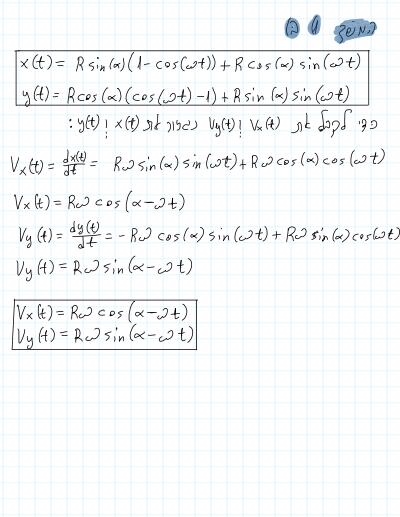 המשך 1 ב
x(t) = R sin(α)(1 - cos(ωt)) + R cos(α) sin(ωt)
y(t) = R cos(α)(cos(ωt) - 1) + R sin(α) sin(ωt)
כדי לקבל את Vx(t) ו Vy(t) נגזור את x(t) ו y(t) :
Vx(t) = dx(t)/dt = Rω sin(α) sin(ωt) + Rω cos(α) cos(ωt)
Vx(t) = Rω cos(α - ωt)
Vy(t) = dy(t)/dt = -Rω cos(α) sin(ωt) + Rω sin(α) cos(ωt)
Vy(t) = Rω sin(α - ωt)
Vx(t) = Rω cos(α - ωt)
Vy(t) = Rω sin(α - ωt)